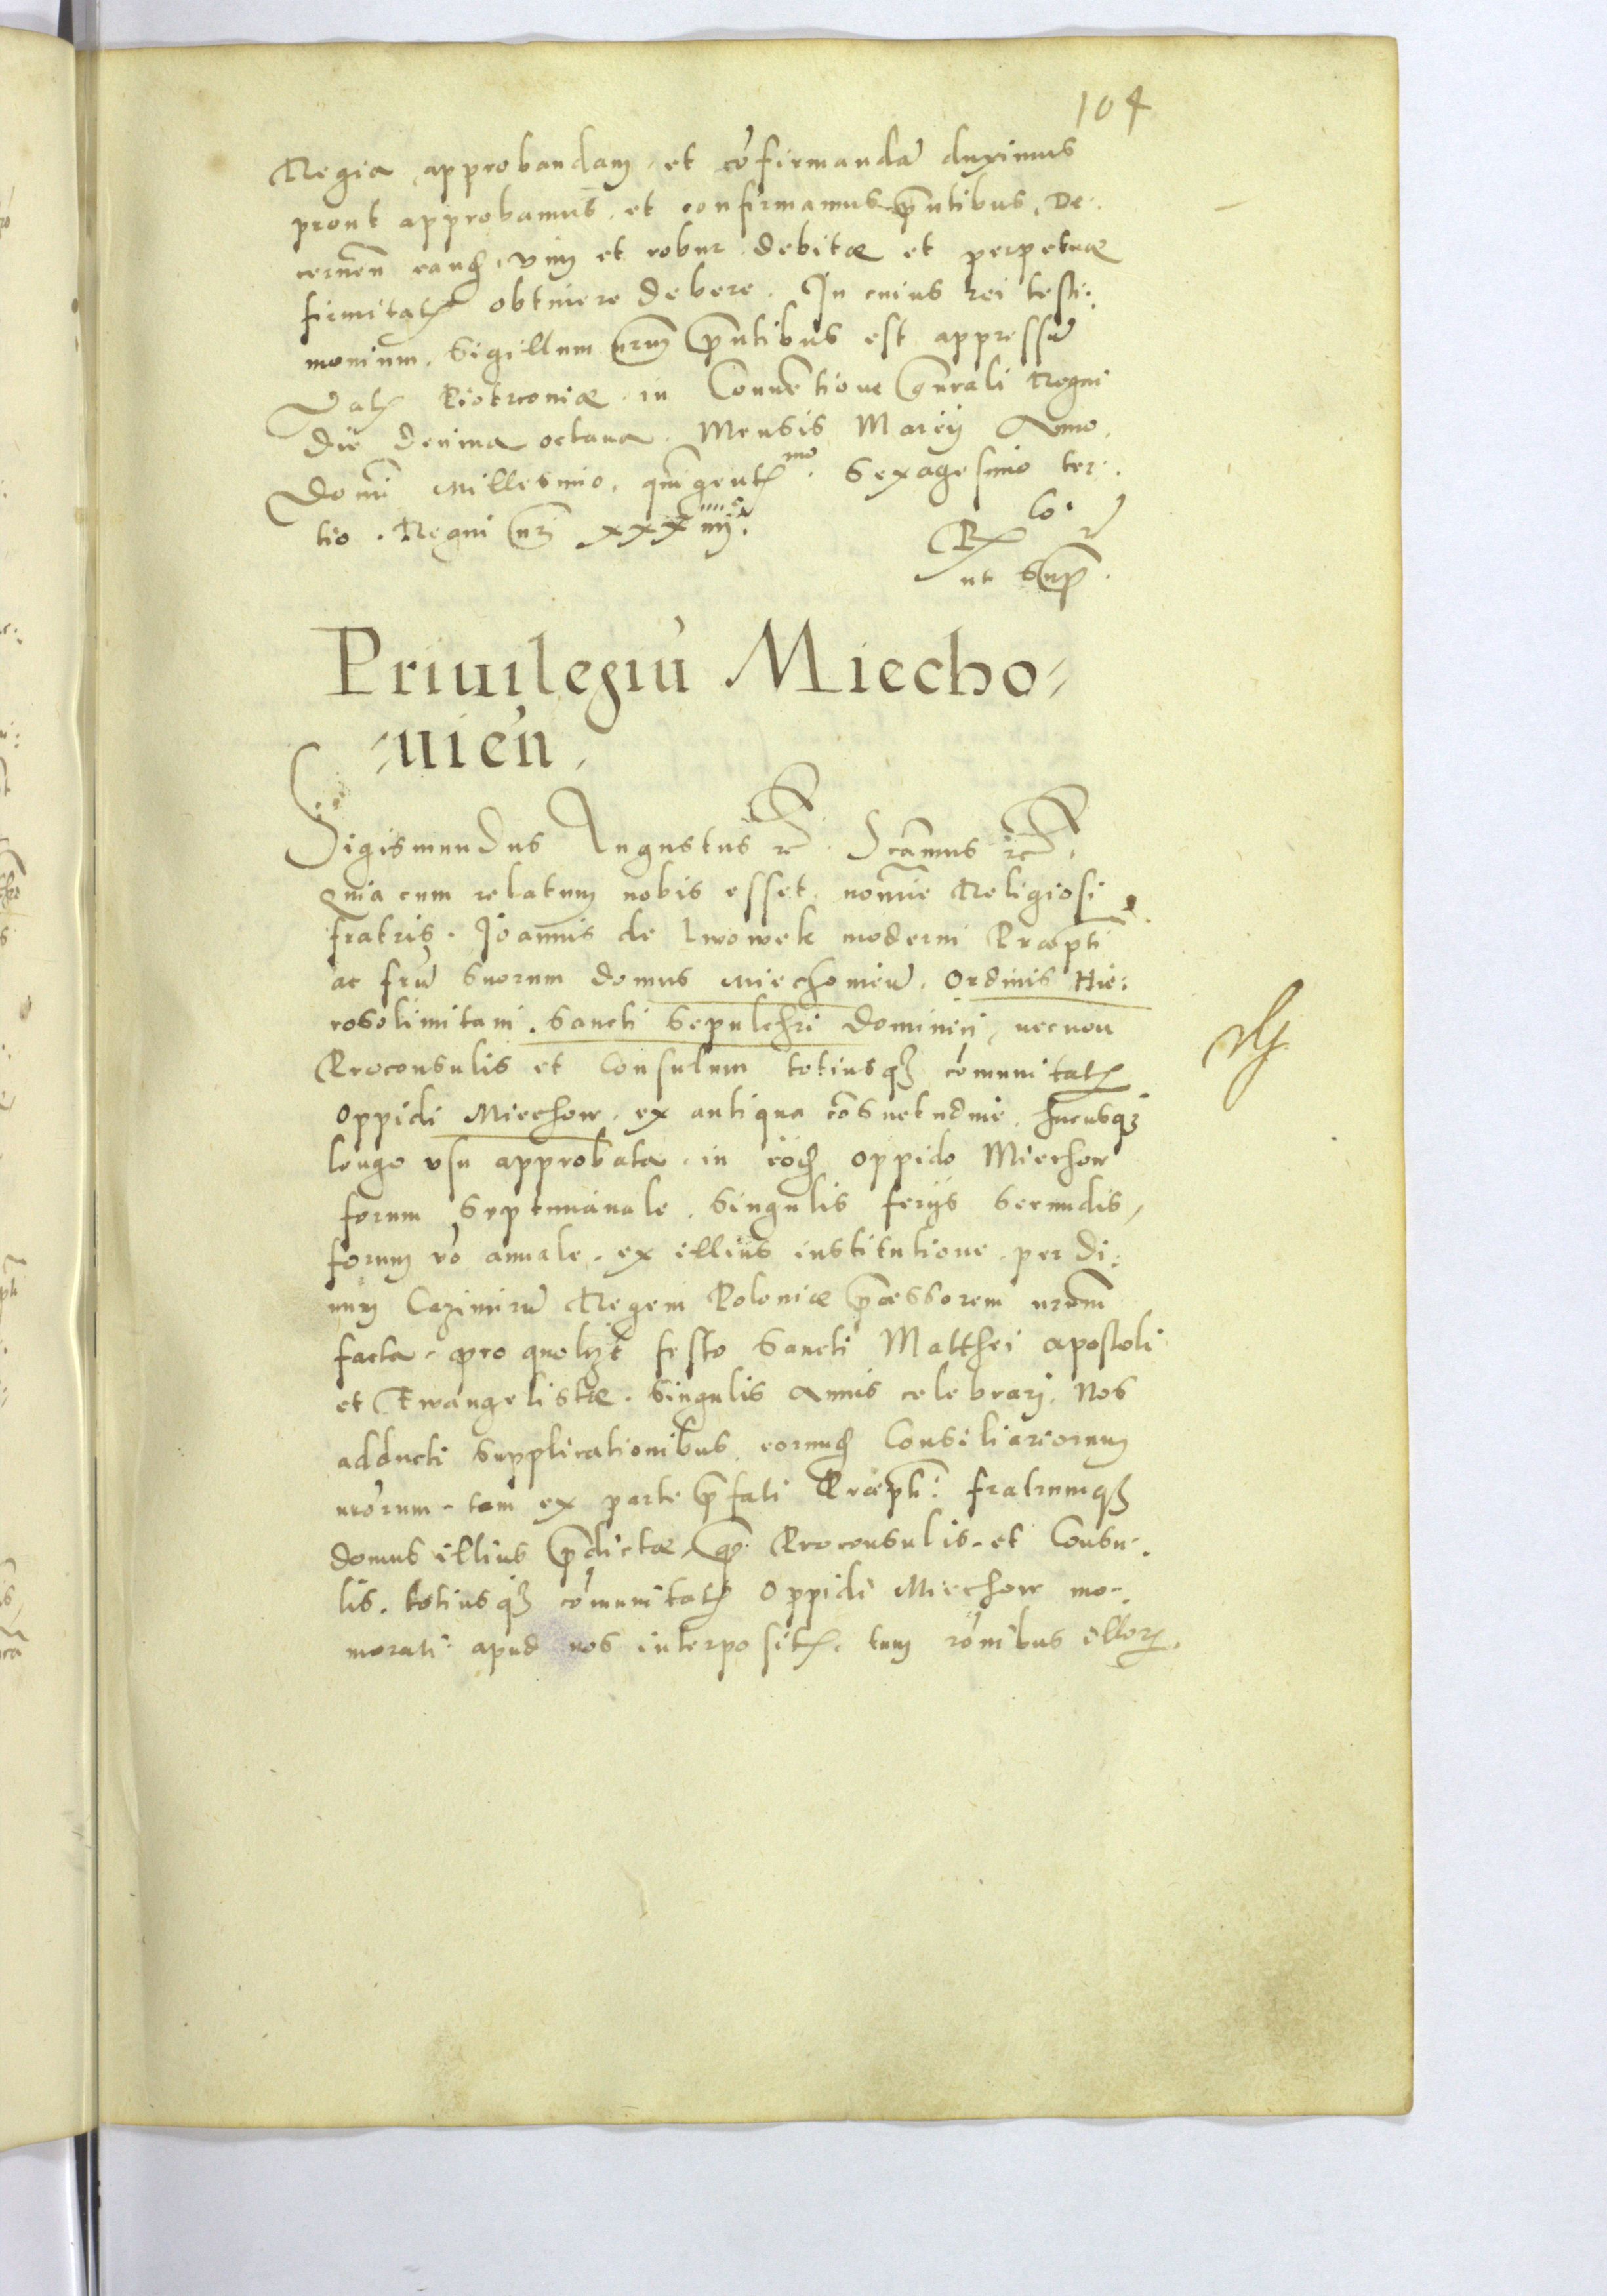 104
Regia approbandam et cōfirmandā duximus
prout approbamus et confirmamus pn̄tibus. De-
cernen̄ eand. vim et robur debitæ et perpetuæ
firmitat. obtinere debere. In cuius rei testi:
monium. Sigillum nrm̄ pn̄tibus est appressū
Dat. Piotrconiæ in Conuētione gn̄rali Regni
die decima octaua. Mensis Marcij Anno.
Domi millesimo. quīgentmo. Sexagesimo ter:
tio. Regni nr̄i xxxiiij.
ut Sup.
Priuilegiū Miecho⸗
⸗uien̄.
Sigismundus Augustus &c. Scāmus &c.
Quia cum relatum nobis esset. nomīe Religiosi
fratris. Joannis de Lwowek moderni Præpti
ac frūm suorum domus Miechouien̄. Ordinis Hie:
rosolimitani. Sancti Sepulchri Dominici, necnon
Proconsulis et Consulum totiusq̨ cōmunitat.
Oppidi Miechow. ex antiqua cōsuetudine. hucusq̨
longo vsu approbata. in eod. oppido Miechow
forum Septimanale. Singulis ferijs Secundis,
forum vō annale. ex illius institutione. per Di:
uum Cazimirū Regem Poloniæ præssorem nrūm
facta. pro quolȳt festo Sancti Matthei Apostoli
et Ewangelistæ. Singulis Annis celebrari. Nos
adducti supplicationibus eorund. Consiliariorum
nrōrum. tam ex parte p̄fati Præpti: fratrumq̨
domus illius p̄dictæ, qȝ. Proconsulis. et Consu-
lis. totiusq̨ cōmunitat. Oppidi Miechow mo-
morati: apud nos interposit. tum rōnibus illor.